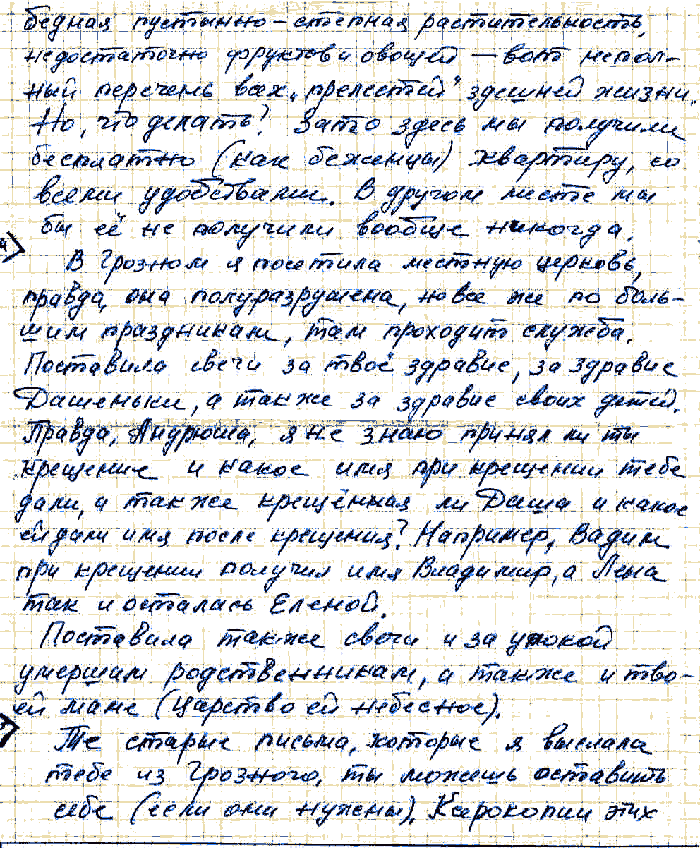 бедная пустынно-степная растительность,
недостаточно фруктов и овощей — вот непол-
ный перечень всех „прелестей" здешней жизни.
Но, что делать? Зато здесь мы получили
бесплатно (как беженцы) квартиру, со
всеми удобствами. В другом месте мы
бы её не получили вообще никогда.
В Грозном я посетила местную церковь,
правда, она полуразрушена, но все же по боль-
шим праздникам, там проходит служба.
Поставила свечи за твоё здравие, за здравие
Дашеньки, а также за здравие своих детей.
Правда, Андрюша, я не знаю принял ли ты
крещение и какое имя при крещении тебе
дали, а также крещённая ли Даша и какое
ей дали имя после крещения? Например, Вадим
при крещении получил имя Владимир, а Лена
так и осталась Еленой.
Поставила также свечи и за упокой
умершим родственникам, а также и тво-
ей маме (Царство ей небесное).
Те старые письма, которые я выслала
тебе из Грозного, ты можешь оставить
себе (если они нужны). Ксерокопии этих